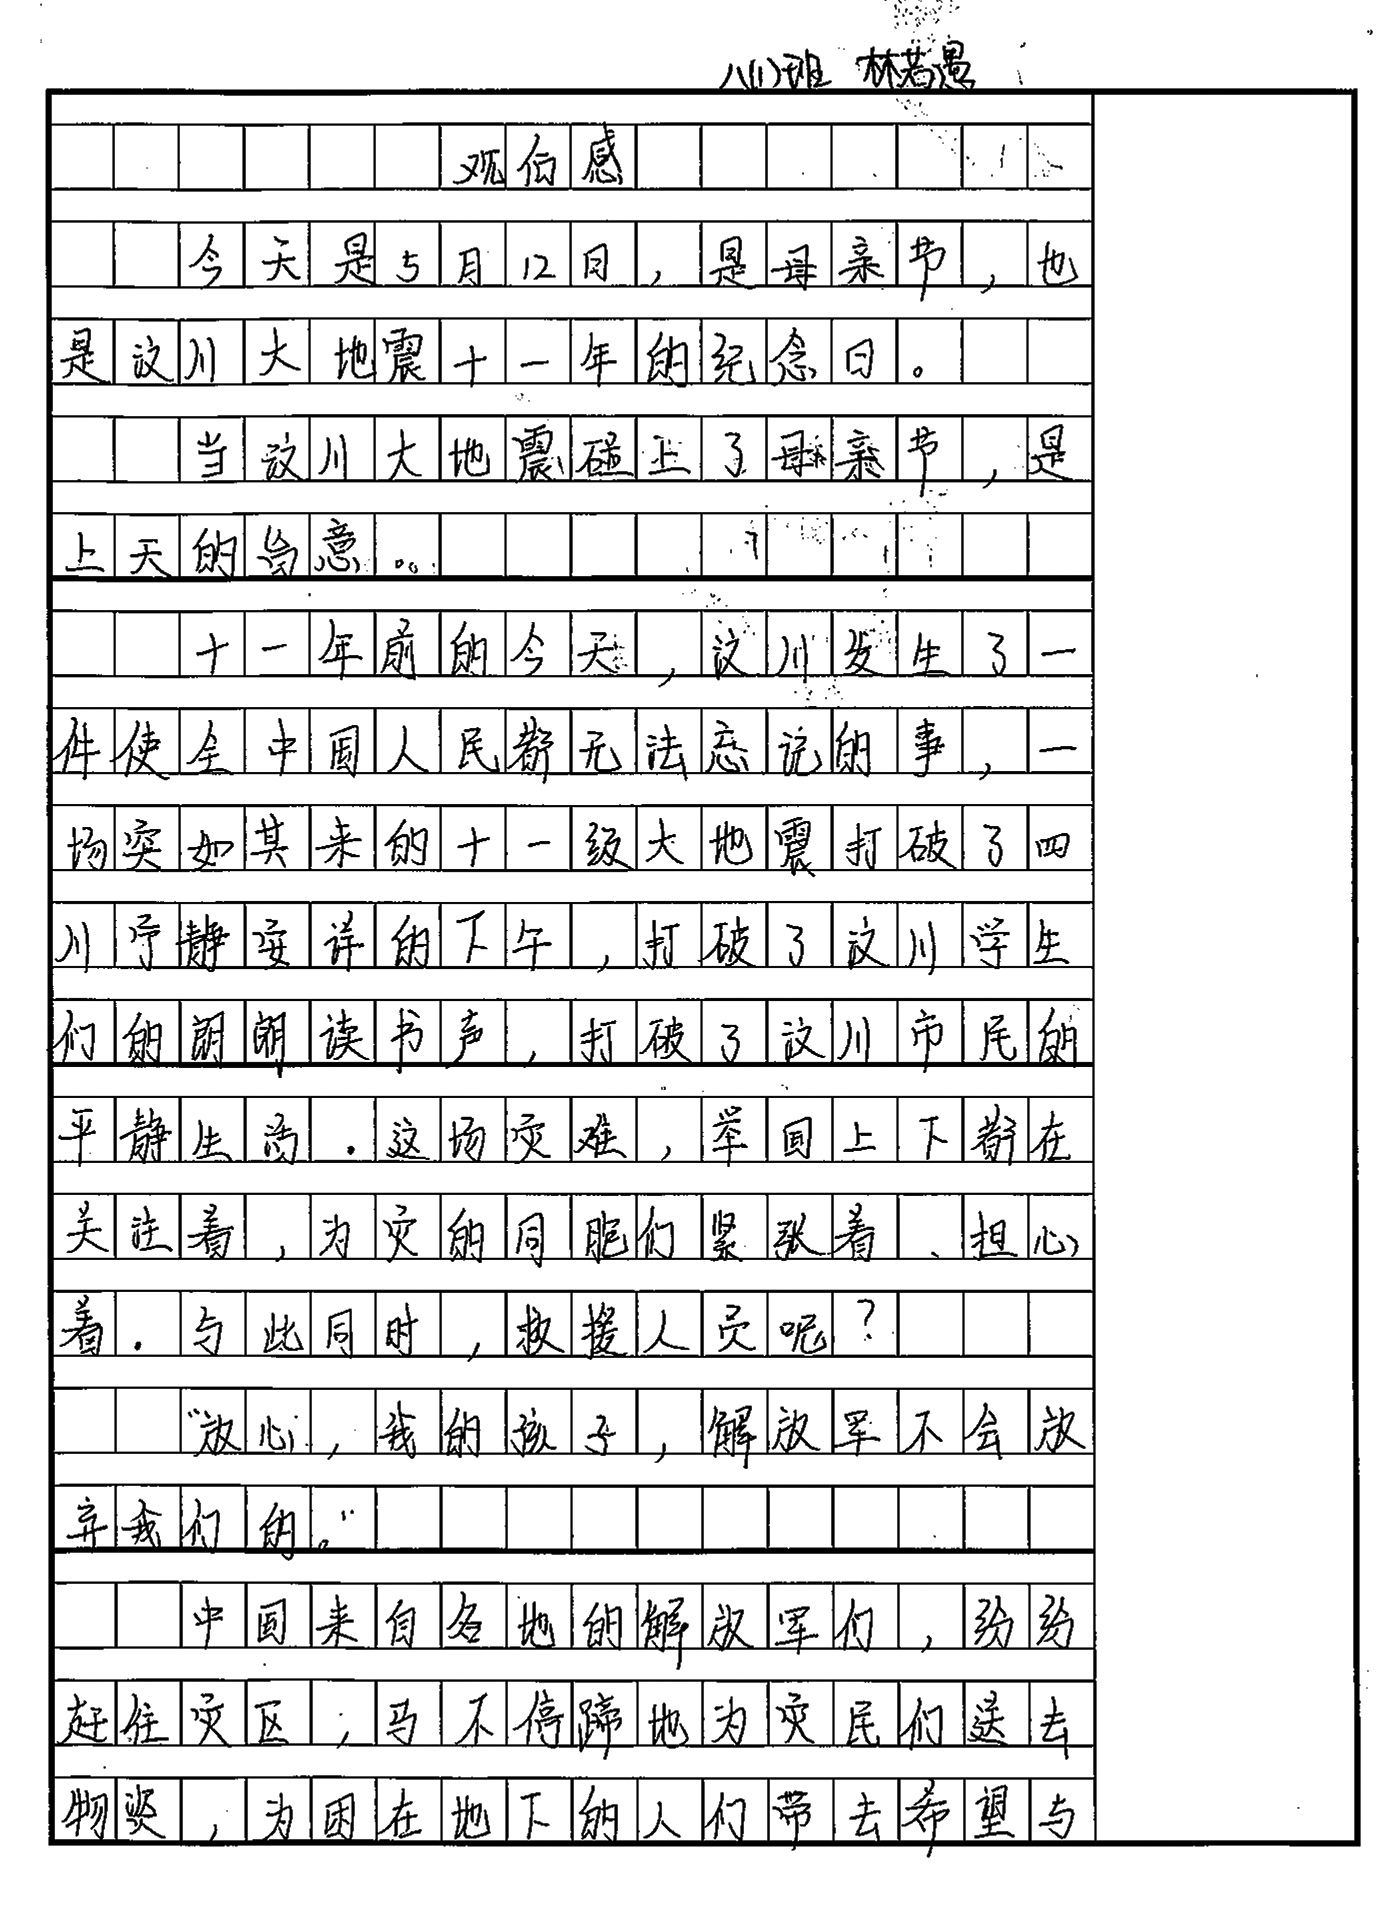 八(1)班 林若愚
观后感
今天是5月12日，是母亲节，也
是汶川大地震十一年的纪念日。
当汶川大地震碰上了母亲节，是
上天的旨意。
十一年前的今天，汶川发生了一
件使全中国人民都无法忘记的事，一
场突如其来的十一级大地震打破了四
川宁静安详的下午，打破了汶川学生
们的朗朗读书声，打破了汶川市民的
平静生活.这场灾难，举国上下都在
关注着，为灾的同胞们紧张着、担心
着.与此同时，救援人员呢？
“放心，我的孩子，解放军不会放
弃我们的。”
中国来自各地的解放军们，纷纷
赶往灾区，马不停蹄地为灾民们送去
物资，为困在地下的人们带去希望与